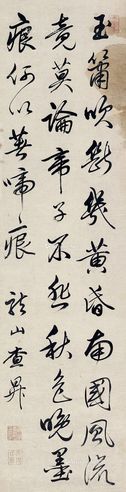 玉簫吹斷幾黃昏南國風流
竟莫論帝子不秋色晚墨
痕何以啼痕 龍山查昇